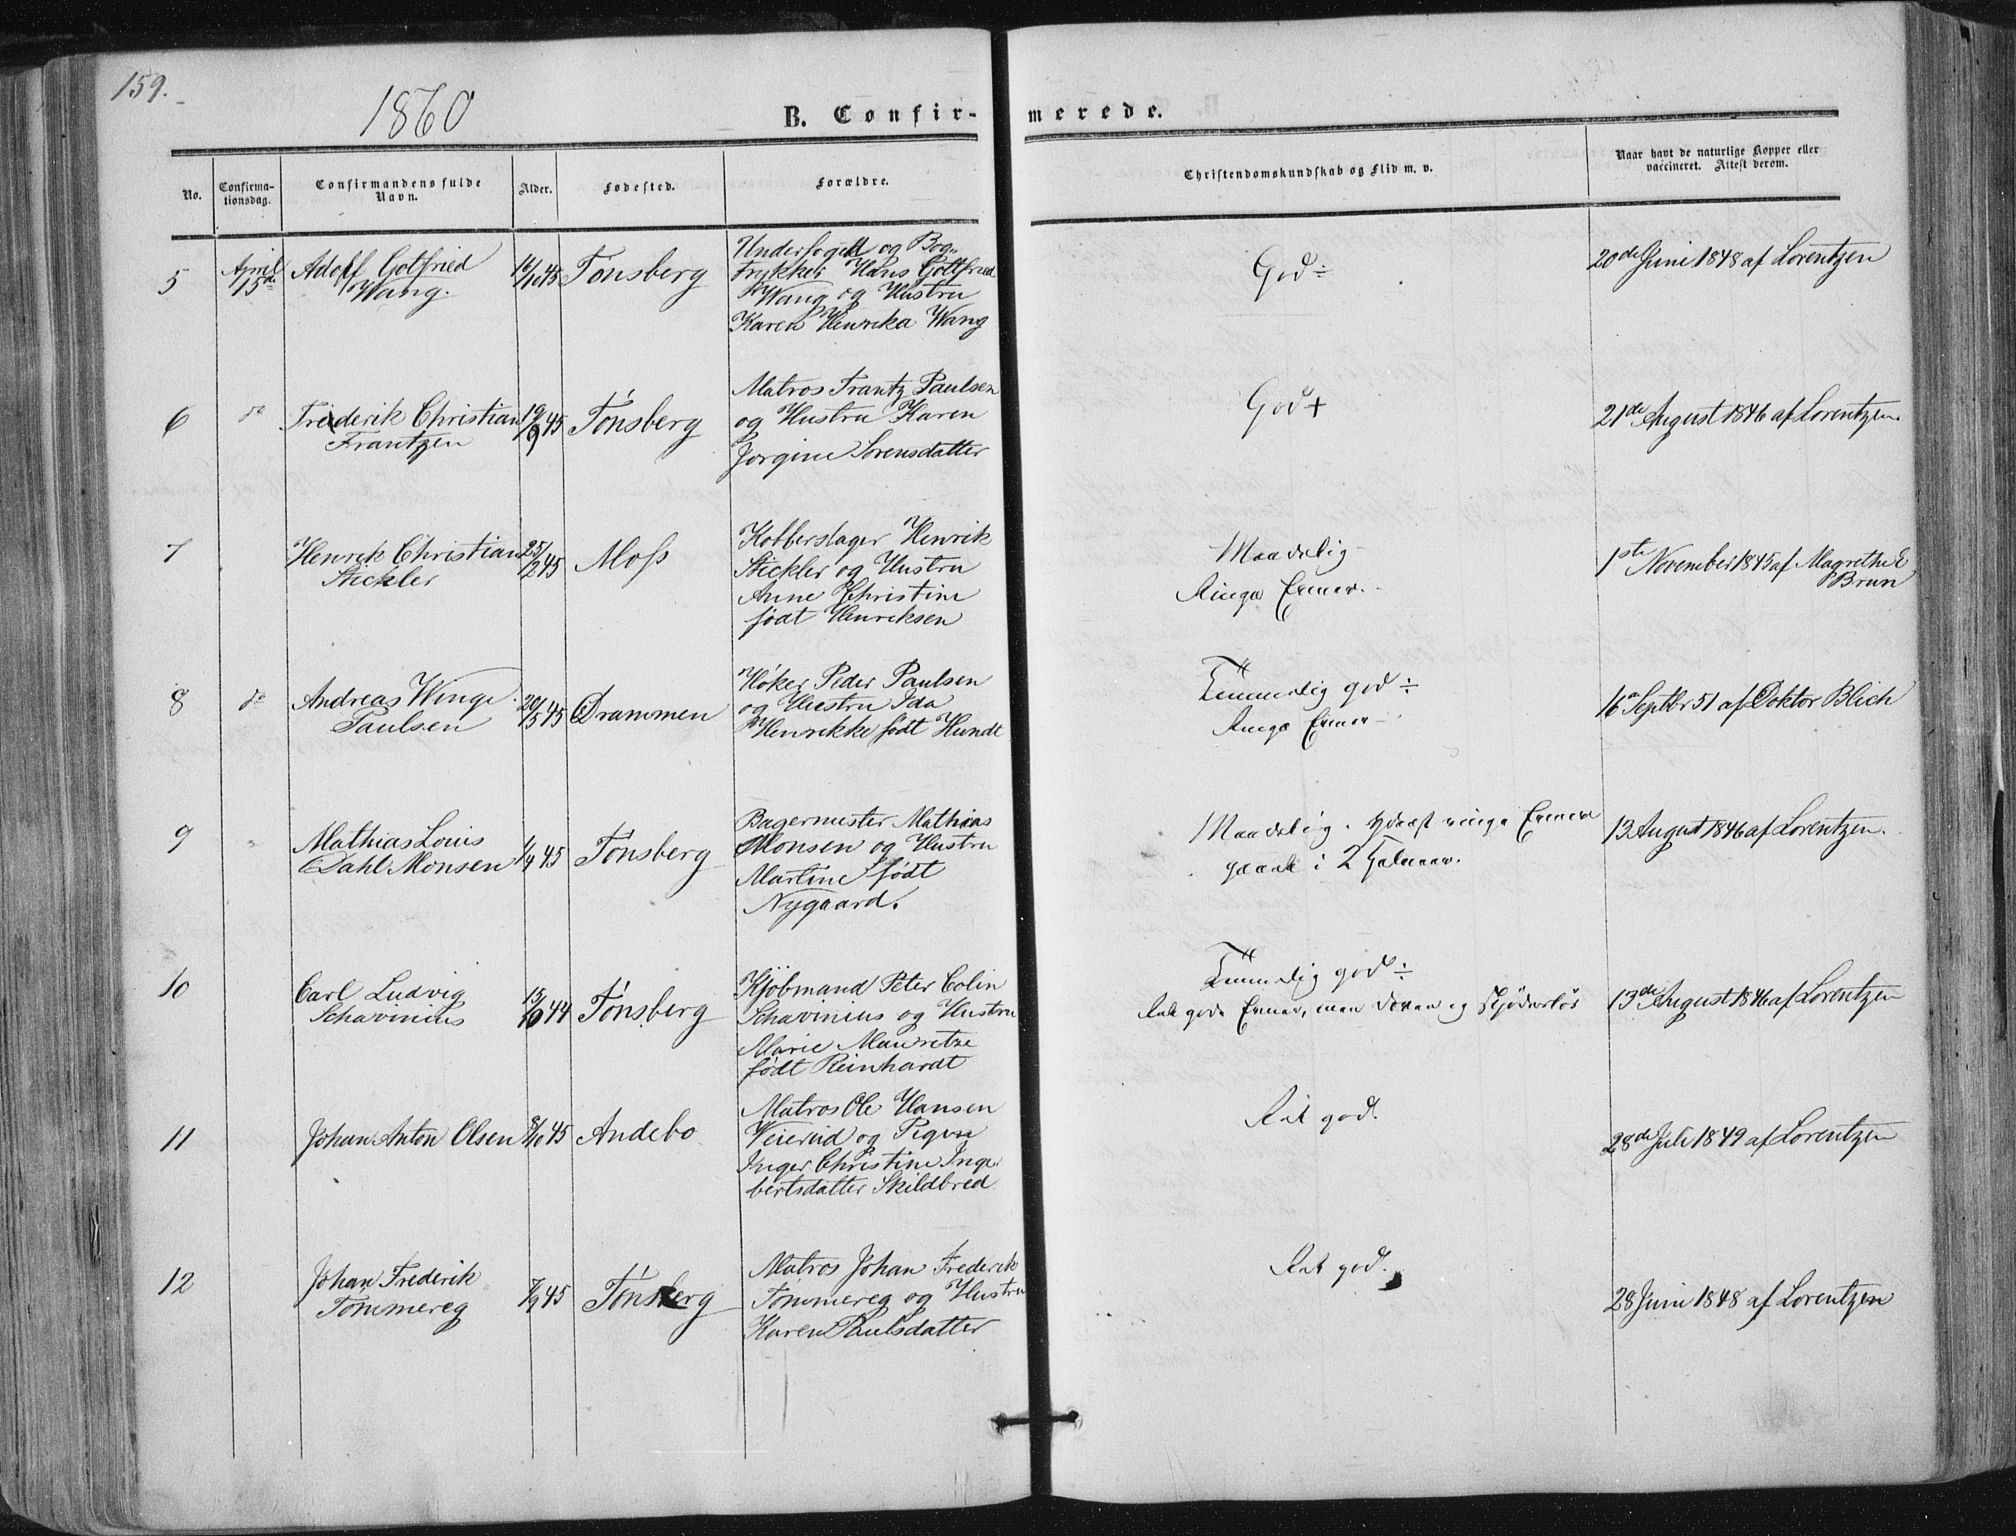 159.
1860
B. Confir-
merede.
No.
Confirma-
tionsdag.
Confirmandens fulde
Navn.
Alder.
Fødested.
Forældre.
Christendomskundskab og Flid m. v.
Naar havt de naturlige Kopper eller
vaccineret. Attest derom.
5
April
15de
Adolf Gotfried
Wang.
16/10 45
Tønsberg
Underfoged og Bog-
trykker Hans Gottfried
Wang og Hustru
Karen Henrika Wang
God ÷
20de Juni 1848 af Lorentzen
6
do
Frederik Christian
Frantzen
19/9 45
Tønsberg
Matros Frantz Paulsen
og Hustru Karen
Jorgine Sorensdatter
God +
21de August 1846 af Lorentzen.
7
Henrik Christian
Stickler
25/2 45
Moss
Kobberslager Henrik
Stickler og Hustru
Anne Christine
født Henriksen
Maadelig
Ringe Evner.
1ste November 1845 af Magrethe
Brun
8
do
Andreas Winge
Paulsen
20/5 45
Drammen
Høker Peder Paulsen
og Hustru Ida
Henrikke født Hundt
Temmelig god ÷
Ringe Evner
16 Septbr 51 af Doktor Blich
9
Mathias Louis
Dahl Monsen
1/4 45
Tønsberg
Bagermester Mathias
Monsen og Hustru
Martine født
Nygaard.
Maadelig. yderst ringe Evner
13 August 1846 af Lorentzen.
10
Carl Ludvig
Schavinius
15/10 44
Tønsberg
Kjöbmand Peter Colin
Schavinius og Hustru
Marie Mauretze
født Reinhardt
Temmelig god ÷
Ret gode Evner, men doven og skjødesløs
13de August 1846 af Lorentzen
11
Johan Anton Olsen
8/10 45
Andebo
Matros Ole Hansen
Veierud og Pigen
Inger Christine Inge
bertsdatter Skildbred
Ret god.
28de Juli 1849 af Lorentzen
12
Johan Frederik
Tommereg
7/9 45
Tønsberg
Matros Johan Frederik
Tommereg og Hustru
Karen Paulsdatter
Ret god.
28 Juni 1848 af Lorentzen